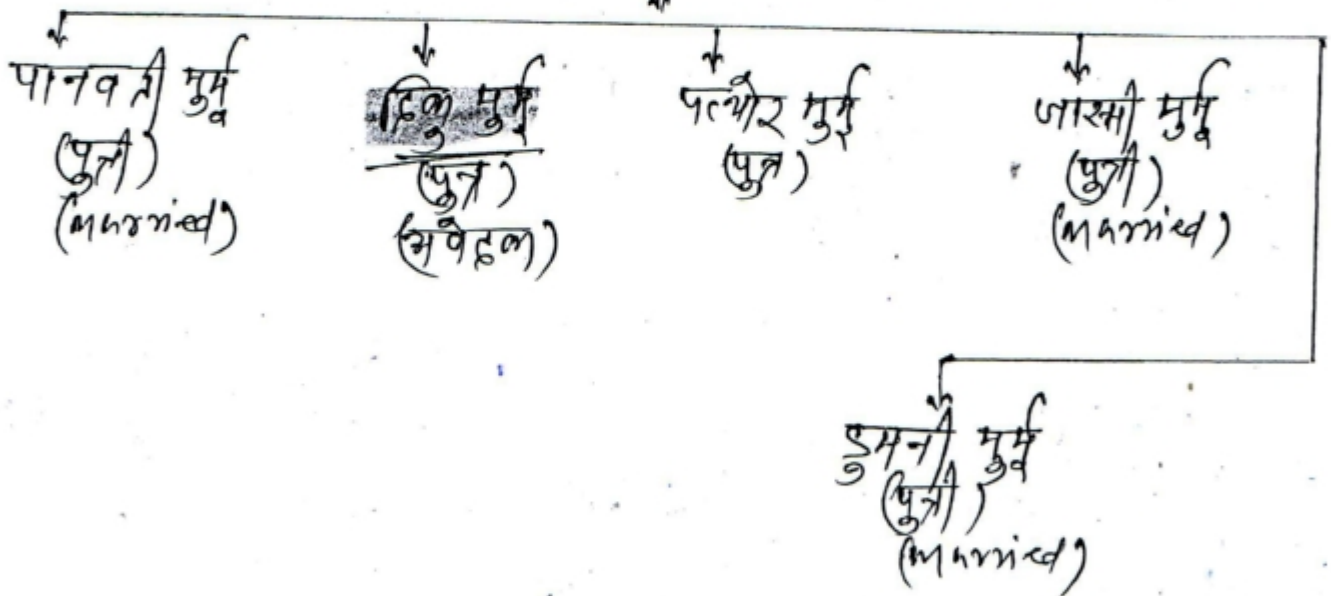 पानवती मुर्मू
(पुत्री)
(married)
टिकु मुर्मू
(पुत्र)
(आवेदक)
पत्थोर मुर्मू
(पुत्र)
जास्मी मुर्मू
(पुत्री)
(married)
डुमनी मुर्मू
(पुत्री)
(married)